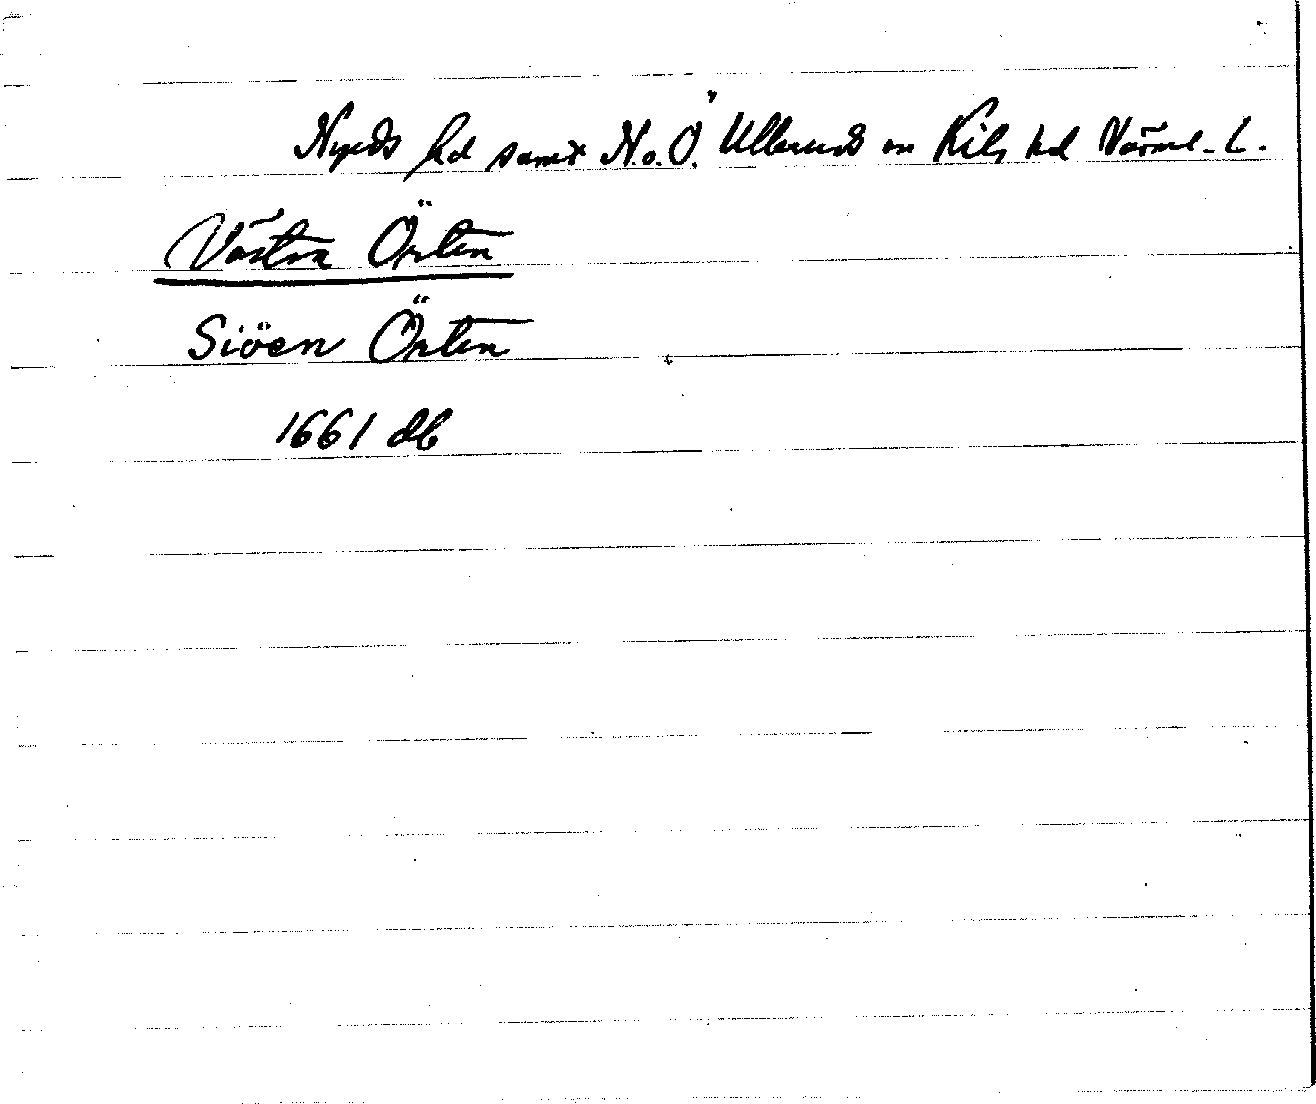 Nyeds hd samt N. o. Ö. Ulleruds sn Kils hd Värml. L.
Västra Örten
Siöen Örten
1661 db